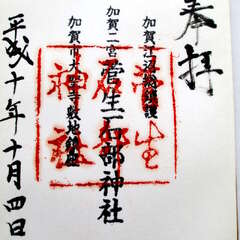 奉拝
加賀江沼総鎮護
加賀二宮 菅生石部神社
加賀市大聖寺敷地鎮座
平成十年十月四日